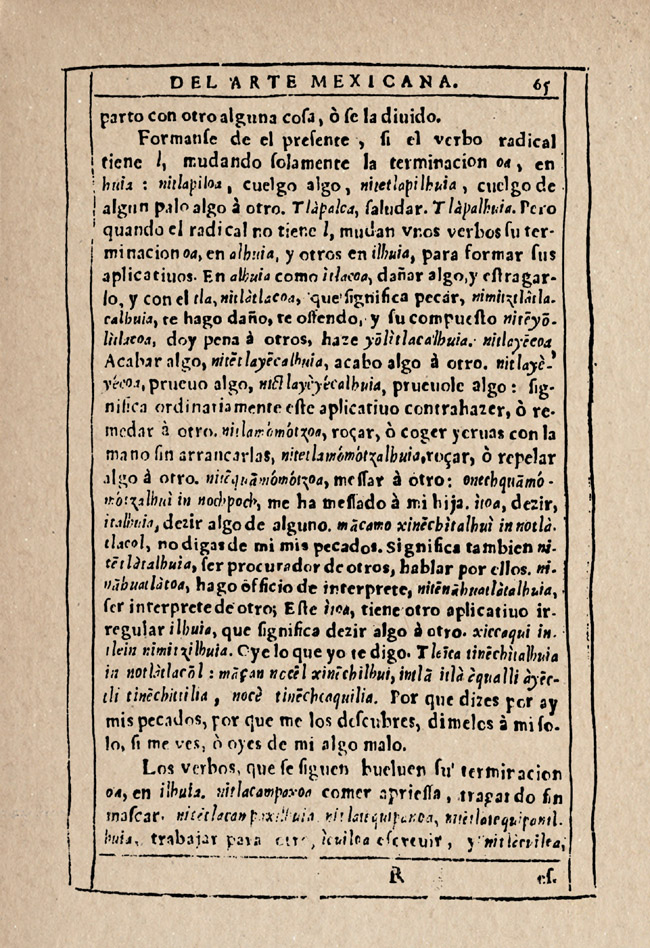 DEL ARTE MEXICANA. 65
parto con otro alguna cosa, ò se la diuido.
Formanse de el presente, si el verbo radical
tiene l, mudando solamente la terminacion oa, en
huia: nitlapiloa, cuelgo algo, nitetlapilhuia, cuelgo de
algun palo algo à otro. Tlàpalca, saludar. Tlàpalhuia. Pero
quando el radical no tiene l, mudan vnos verbos su ter-
minacion oa, en alhuia, y otros en ilhuia, para formar sus
aplicatiuos. En alhuia como ìtlacoa, dañar algo, y estragar-
lo, y con el tla, nitlàtlacoa, que significa pecar, nimitztlàtla-
calhuia, te hago daño, te offendo, y su compuesto nitēyō-
lìtlacoa, doy pena à otros, haze yōlìtlacalhuia. nitlayēcoa
Acabar algo, nitētlayēcalhuia, acabo algo à otro. nitlayè-
yēcoa, prueuo algo, nitētlayèyēcalhuia, prueuole algo: sig-
nifica ordinariamente este aplicatiuo contrahazer, ò re-
medar à otro. nitlamòmótzoa, roçar, ò coger yeruas con la
mano sin arrancarlas, nitetlamòmòtzalhuia, roçar, ò repelar
algo à otro. nitēquāmòmòtzoa, messar à otro: onechquāmò-
mòtzalhuì in nochpoch, me ha messado à mi hija. ìtoa, dezir,
italhuia, dezir algo de alguno. mācamo xinēchitalhuì in notlà-
tlacol, no digas de mi mis pecados. Significa tambien ni-
tētlàtalhuia, ser procurador de otros, hablar por ellos. ni-
nāhuatlàtoa, hago officio de interprete, nitēnāhuatlàtalhuia,
ser interprete de otro; Este ìtoa, tiene otro aplicatiuo ir-
regular ilhuia, que significa dezir algo à otro. xiccaqui in-
tlein nimitzilhuia. Oye lo que yo te digo. Tleica tinēchìtalhuia
in notlàtlacōl: māçan nocēl xinēchilhui, intlā itlà èqualli àyēc-
tli tinēchittilia, nocè tinēchcaquilia. Por que dizes por ay
mis pecados, por que me los descubres, dimelos à mi so-
lo, si me ves, ò oyes de mi algo malo.
Los verbos, que se siguen bueluen su terminacion
oa, en ilhuia. nitlacampaxoa comer apriessa, tragando sin
mascar. nitētlacampaxilhuia. nitlatequipanoa, nitētlatequipanil-
huia, trabajar para otro, ìcuiloa escreuir, y
R es.